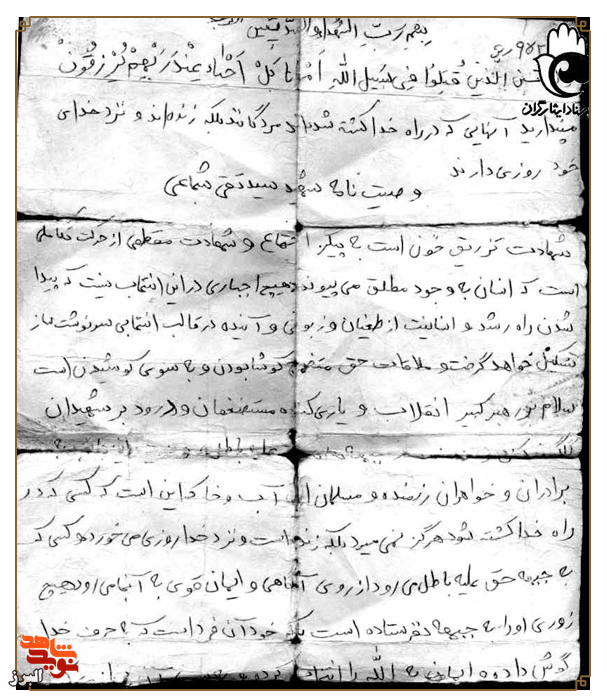 بسم رب الشهدا و الصدیقین
الذین قتلوا فی سبیل الله امواتا بل احیاء عند ربهم یرزقون
مپندارید آنهایی که در راه خدا کشته شده‌اند مردگانند بلکه زنده‌اند و نزد خدای
خود روزی دارند
وصیت نامه شهید سید تقی شجاعی
شهادت تزریق خون است به پیکر اجتماع و شهادت مقطعی از حرکت تکاملی
است که انسان به وجود مطلق می پیوندد هیچ اجباری در این انتخاب نیست که پیدا
شدن راه رشد و انسانیت از طغیان و زبونی و آینده در قالب انتخابی سرنوشت ساز
تشکیل خواهد گرفت و ملاقات حق کوشا بودن و به سوی کوشیدن است
سلام بر رهبر کبیر انقلاب و یاری کننده مستضعفان و درود بر شهیدان
برادران و خواهران رزمنده و مسلمان این آب و خاک این است که کسی که در
راه خدا کشته شود هرگز نمی میرد بلکه زنده است و نزد خدا روزی می خورد و کسی که
به جبهه حق علیه باطل می رود از روی آگاهی و ایمان قوی به آنجا می رود هیچ
زوری او را به جبهه نفرستاده است بلکه خود آن فرد است که به حرف خدا
گوش داده و ایمان به الله را
نوید شاهد
البرز
اسناد ایثارگران